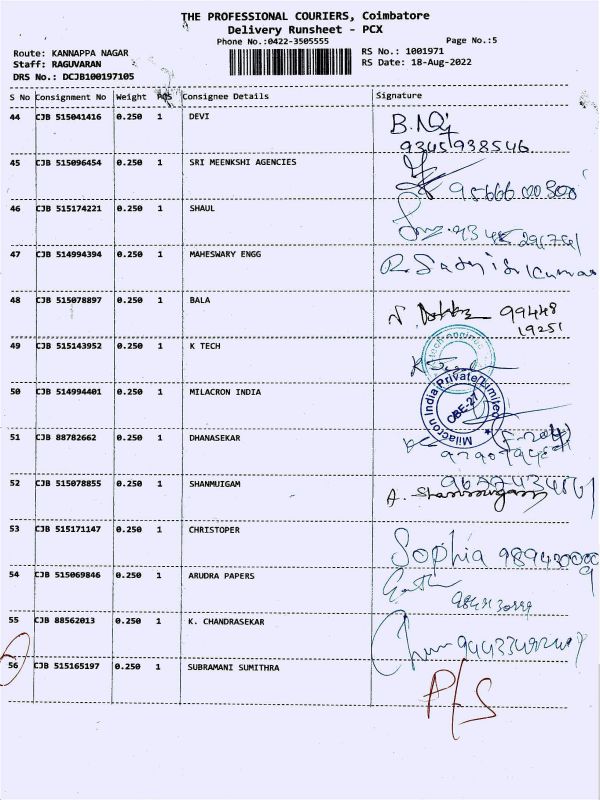 THE PROFESSIONAL COURIERS, Coimbatore
Delivery Runsheet - PCX
Phone No.:0422-3505555 Page No.:5
Route: KANNAPPA NAGAR RS No.: 1001971
Staff: RAGUVARAN RS Date: 18-Aug-2022
DRS No.: DCJB100197105
S No Consignment No Weight PCS Consignee Details Signature
44 CJB 515041416 0.250 1 DEVI
9345938546
45 CJB 515096454 0.250 1 SRI MEENKSHI AGENCIES
46 CJB 515174221 0.250 1 SHAUL
47 CJB 514994394 0.250 1 MAHESWARY ENGG R. Sathish Kumar
48 CJB 515078897 0.250 1 BALA 99448
19251
49 CJB 515143952 0.250 1 K TECH
50 CJB 514994401 0.250 1 MILACRON INDIA Milacron India Private Limited
CBE-27
51 CJB 88782662 0.250 1 DHANASEKAR
52 CJB 515078855 0.250 1 SHANMUIGAM A. Shanmugam
53 CJB 515171147 0.250 1 CHRISTOPER Sophia
54 CJB 515069846 0.250 1 ARUDRA PAPERS
55 CJB 88562013 0.250 1 K. CHANDRASEKAR
56 CJB 515165197 0.250 1 SUBRAMANI SUMITHRA P/S